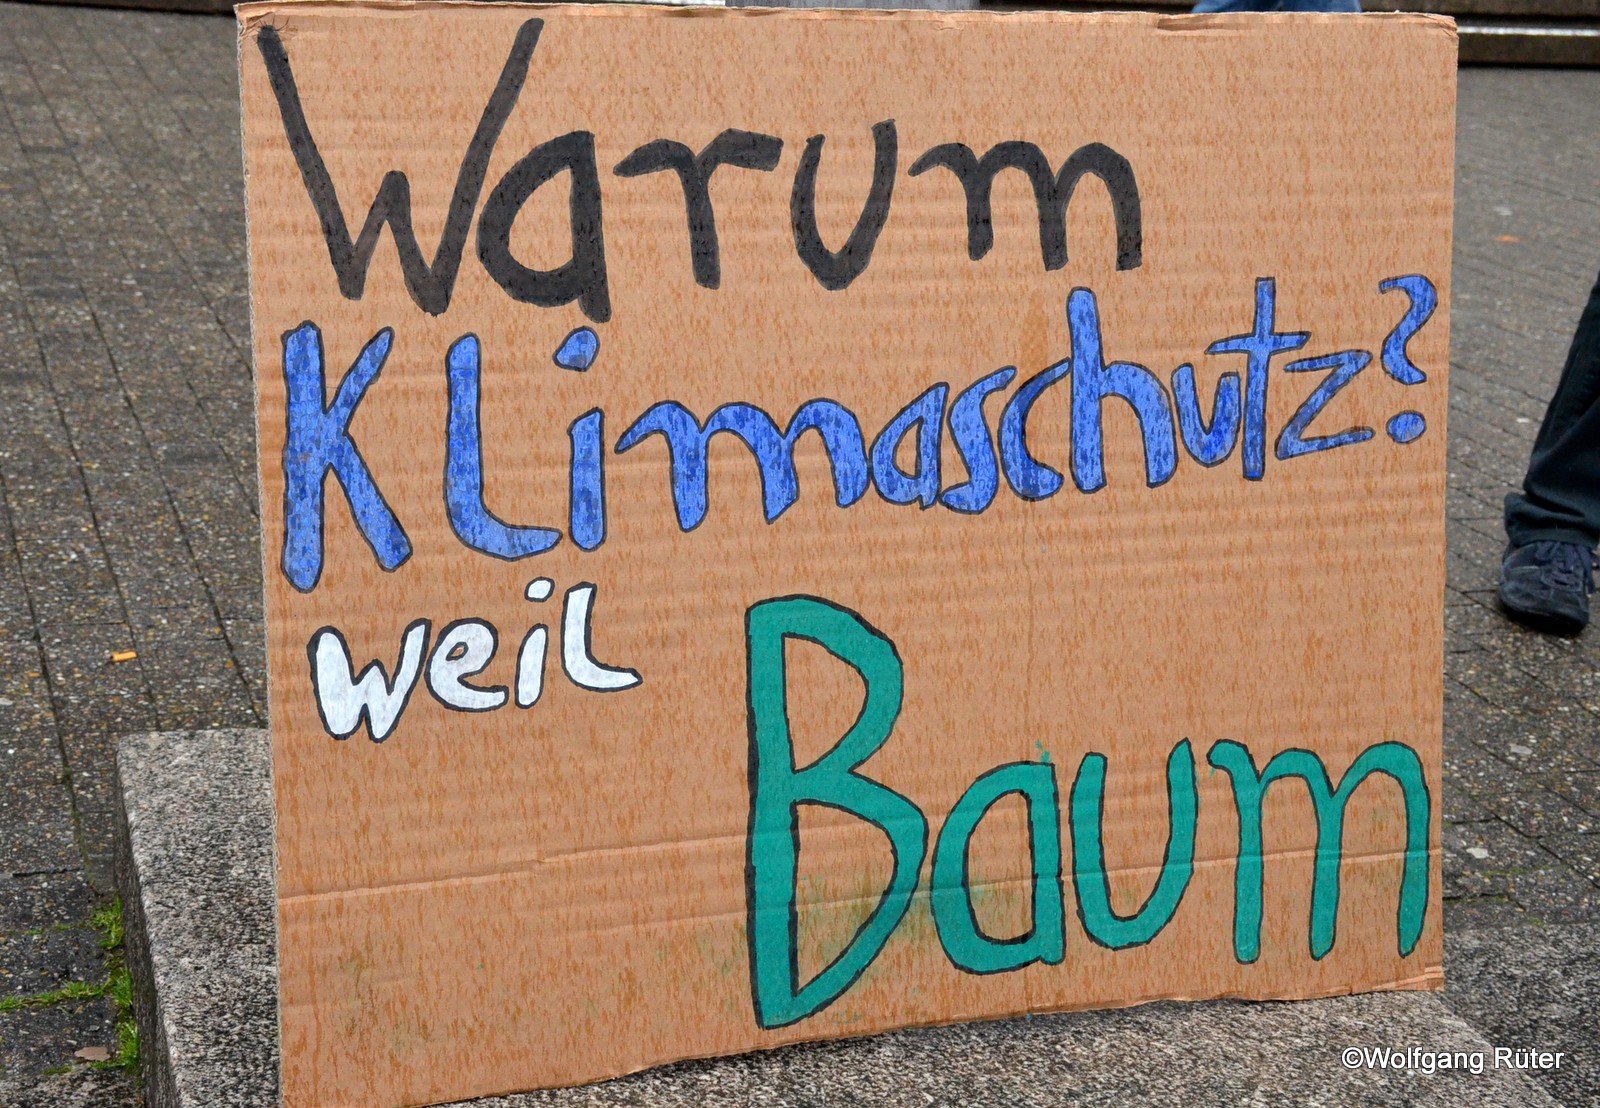 Warum
Klimaschutz?
weil
Baum
©Wolfgang Rüter